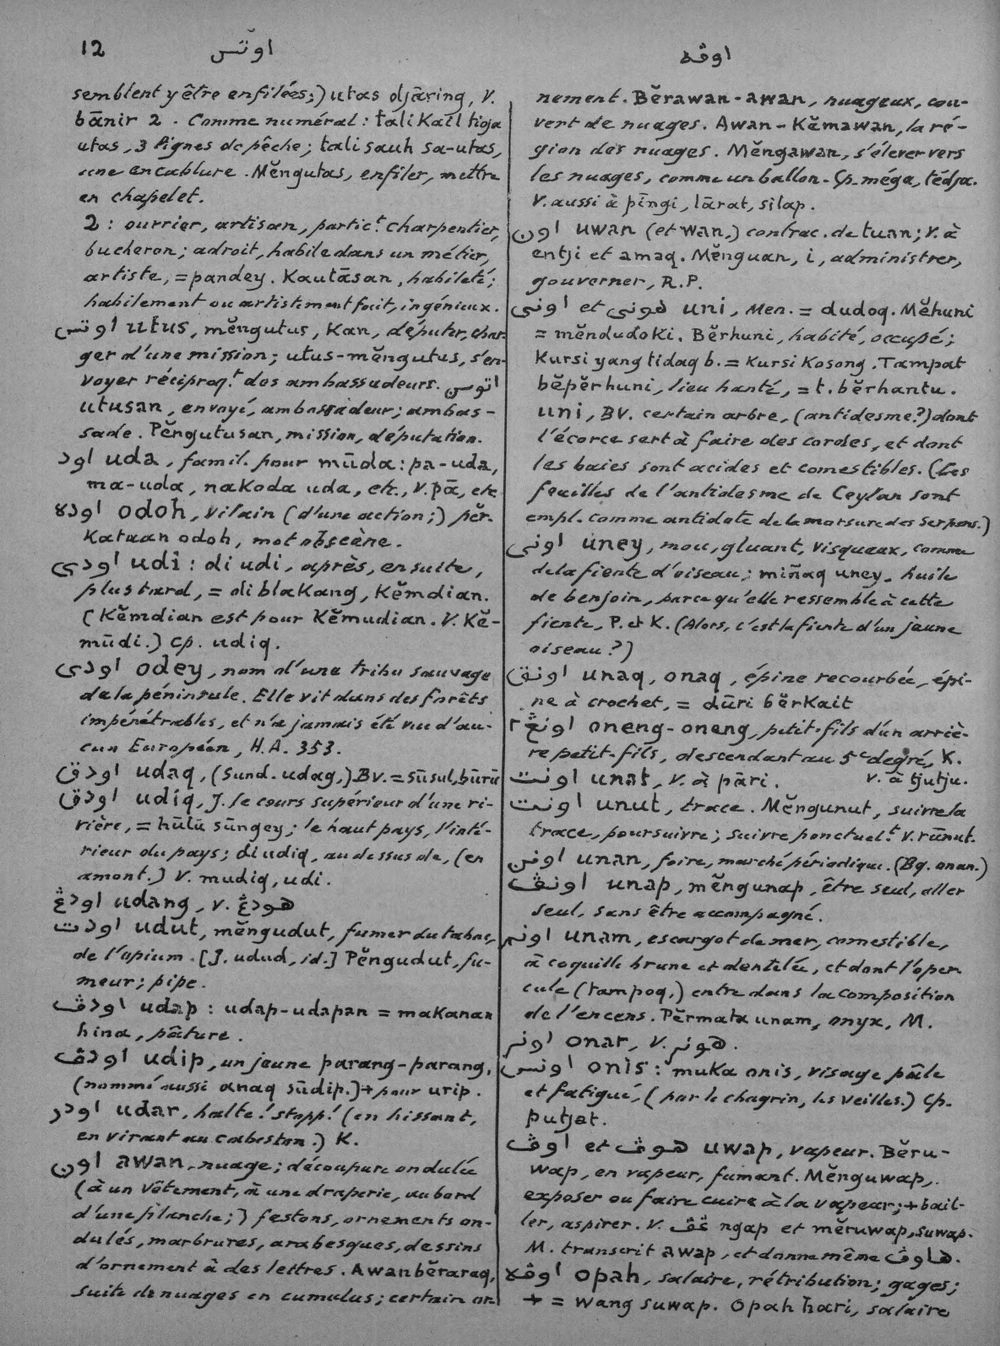 12
اوتس
اوڤه
semblent y être enfilées;) utas djāring, v.
bānir 2. Comme numéral: tali Kaīl tiga
utas, 3 lignes de pêche; tali sauh sa-utas,
une encablure. Mĕngutas, enfiler, mettre
en chapelet.
2: ouvrier, artisan, partict. charpentier,
bucheron; adroit, habile dans un métier,
artiste, = pandey. Kautāsan, habileté;
habilement ou artistement fait, ingénieux.
اوتس utus, mĕngutus, Kan, députer, char-
ger d'une mission; utus-mĕngutus, s'en-
voyer réciproqt. des ambassadeurs. اتوس
utusan, envoyé, ambassadeur; ambas-
sade. Pĕngutusan, mission, députation.
اود uda, famil. pour mūda: pa-uda,
ma-uda, naKoda uda, etc., v. pā, etc.
اوده odoh, vilain (d'une action;) pĕr-
Kataan odoh, mot obscène.
اودي udi: di udi, après, ensuite,
plus tard, = di blaKang, Kĕmdian.
(Kĕmdian est pour Kĕmudian. V. Kĕ-
mūdi.) Cp. udiq.
اودي odey, nom d'une tribu sauvage
de la péninsule. Elle vit dans des forêts
impénétrables, et n'a jamais été vue d'au-
cun Européen, H.A. 353.
اودق udaq, (Sund. udag,) Bv. = sūsul, būrū
اودق udiq, J. le cours supérieur d'une ri-
vière, = hūlū sūngey; le haut pays, l'inté-
rieur du pays; di udiq, au dessus de, (en
amont.) V. mudiq, udi.
اودڠ udang, v. هودڠ
اودت udut, mĕngudut, fumer du tabac,
de l'opium. [J. udud, id.] Pĕngudut, fu-
meur; pipe.
اودڤ udap: udap-udapan = maKanan
hina, pâture.
اودڤ udip, un jeune parang-parang,
(nommé aussi anaq sūdip.) + pour urip.
اودر udar, halte! stopp! (en hissant,
en virant au cabestan.) K.
اون awan, nuage; découpure ondulée
(à un vêtement, à une draperie, au bord
d'une planche;) festons, ornements on-
dulés, marbrures, arabesques, dessins
d'ornement à des lettres. Awan bĕraraq,
suite de nuages en cumulus; certain or-
nement. Bĕrawan-awan, nuageux, cou-
vert de nuages. Awan-Kĕmawan, la ré-
gion des nuages. Mĕngawan, s'élever vers
les nuages, comme un ballon. Cp. méga, tédja.
V. aussi à pīngi, lārat, silap.
اون uwan (et wan,) contrac. de tuan; v. à
entji et amaq. Mĕnguan, i, administrer,
gouverner, R.P.
اوني et هوني uni, Men. = dudoq. Mĕhuni
= mĕndudoKi. Bĕrhuni, habité, occupé;
Kursi yang tidaq b. = Kursi Kosong. Tampat
bĕpĕrhuni, lieu hanté, = t. bĕrhantu.
uni, BV. certain arbre, (antidesme?) dont
l'écorce sert à faire des cordes, et dont
les baies sont acides et comestibles. (Les
feuilles de l'antidesme de Ceylan sont
empl. comme antidote de la morsure des serpens.)
اوني uney, mou, gluant, visqueux, comme
de la fiente d'oiseau; miñaq uney, huile
de benjoin, parce qu'elle ressemble à cette
fiente, P. et K. (Alors, c'est la fiente d'un jeune
oiseau?)
اونق unaq, onaq, épine recourbée, épi-
ne à crochet, = dūri bĕrKait
اونڠ٢ oneng-oneng, petit-fils d'un arriè-
re petit-fils, descendant au 5e degré, K.
v. à tjutju.
اونت unat, v. à pāri.
اونت unut, trace. Mĕngunut, suivre la
trace, poursuivre; suivre ponctuelt. v. rūnut.
اونن unan, foire, marché périodique. (Bg. onan.)
اونڤ unap, mĕngunap, être seul, aller
seul, sans être accompagné.
اونم unam, escargot de mer, comestible,
à coquille brune et dentelée, et dont l'oper-
cule (tampoq,) entre dans la composition
de l'encens. Pĕrmata unam, onyx, M.
اونر onar, v. هونر.
اونس onis: muka onis, visage pâle
et fatigué, (par le chagrin, les veilles.) Cp.
putjat.
اوڤ et هوڤ uwap, vapeur. Bĕru-
wap, en vapeur, fumant. Mĕnguwap,
exposer ou faire cuire à la vapeur; + bail-
ler, aspirer. V. ڠڤ ngap et mĕruwap, suwap.
M. transcrit awap, et donna même هاوڤ.
اوڤه opah, salaire, rétribution; gages;
+ = wang suwap. Opah hari, salaire